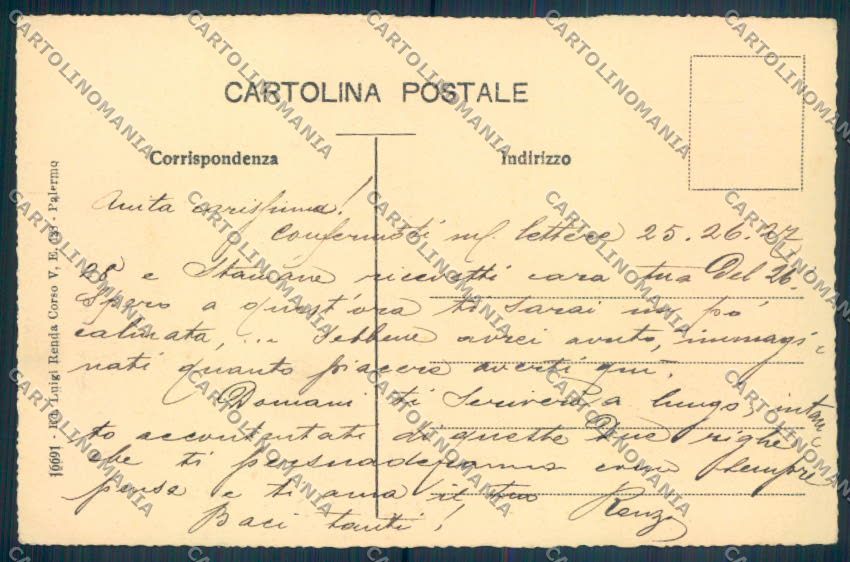 CARTOLINA POSTALE
Corrispondenza
Indirizzo
Anita carissima!
Confermoti mie lettere 25.26.27,
28 e Stamane ricevetti cara tua del 26.
Spero a quest'ora ti sarai un pò
calmata,... Sebbene avrei avuto, immagi-
nati quanto piacere averti quì.
Domani ti scriverò a lungo, intan-
to accontentati di queste due righe
che ti persuaderanno come sempre
pensa e ti ama il tuo
Renzo
Baci tanti!
10691 - Ed. Luigi Renda Corso V. E. - Palermo
CARTOLINOMANIA